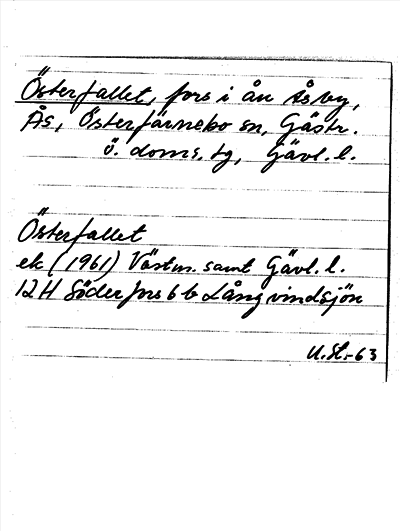 Österfallet, fors i ån Åsby,
Ås, Österfärnebo sn, Gästr.
ö. doms. tg, Gävl. l.
Österfallet
ek (1961) Västm. samt Gävl. l.
12H Söderfors 6 b Långvindsjön
U.St.-63